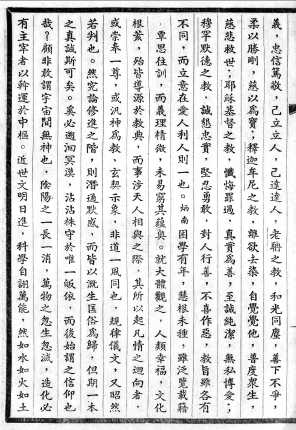 義，忠信篤敬，己立立人，己達達人，老聃之教，和光同塵，善下不爭，
柔以勝剛，慈以爲寶；釋迦牟尼之教，離欲去染，自覺覺他，普度衆生，
慈悲救世；耶穌基督之教，懺悔罪過，真實爲善，至誠純潔，無私博愛；
穆罕默德之教，誠懇忠實，堅忍勇敢，對人行善，不喜作惡，教旨雖各有
不同，而立意在愛人利人則一也。幼南困學有年，慧根未種，雖泛覽載籍
，覃思往訓，而義理精微，未易窮其蘊奧。就大體觀之，人類幸福，文化
根荄，殆皆導源於教典，而事涉天人相與之際，其所以起凡情之迴向者，
或崇奉一尊，或汎神爲教，玄契示象，非道一風同也。規律儀文，又昭然
若判也。然究論修進之階，則潛通默感，而皆以溉生匡俗爲歸，但期一本
之真誠斯可矣。奚必迴洄冥漠，沾沾株守於唯一皈依，而後始謂之信仰也
哉？顧非敢謂宇宙間無神也，陰陽之一長一消，萬物之忽生忽滅，造化必
有主宰者以斡運於中樞。近世文明日進，科學自詡萬能，然如水如火如土